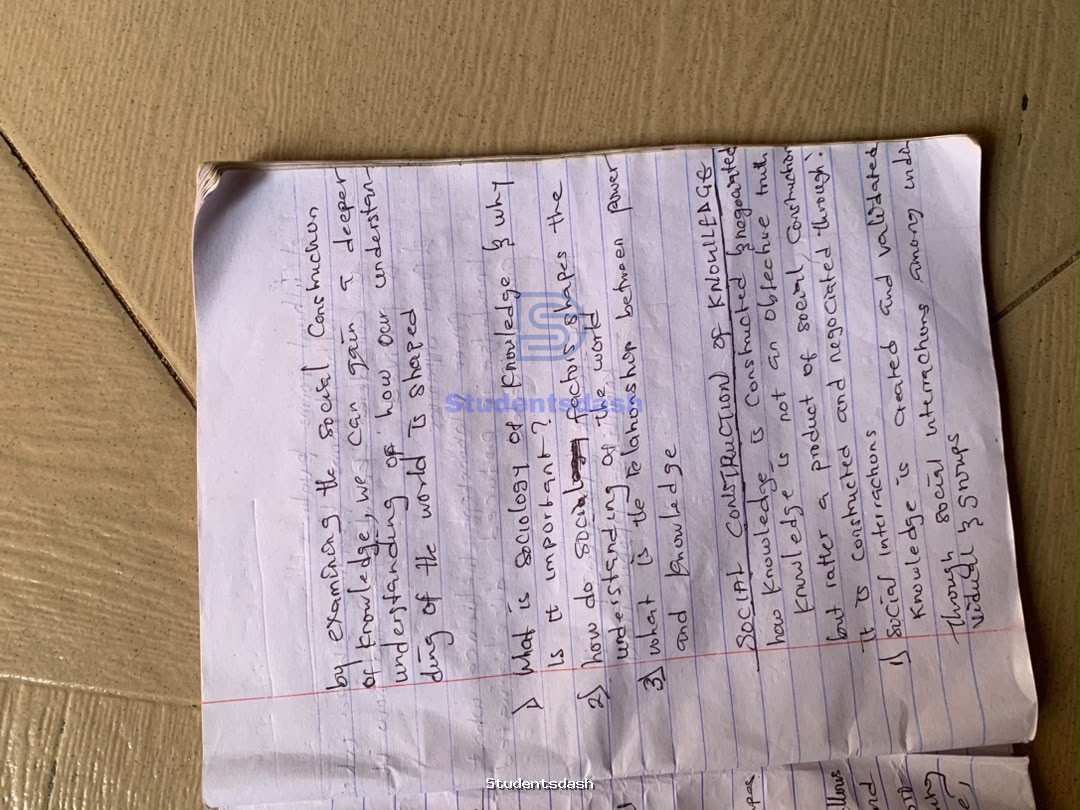 by examining the social Construction
of knowledge, we can gain a deeper
understanding of how our understan-
ding of the world is shaped
1) What is sociology of knowledge & why
is it important?
2) how do social factors shapes the
understanding of the world
3) what is the relationshop between power
and knowledge
SOCIAL CONSTRUCTION OF KNOWLEDGE
how knowledge is constructed & negociated
knowledge is not an objective truth
but rather a product of social, Construction
it is constructed and negociated through:
1) Social interractions
Knowledge is created and validated
through social interractions among indi-
viduals & groups
Studentsdash
Studentsdash